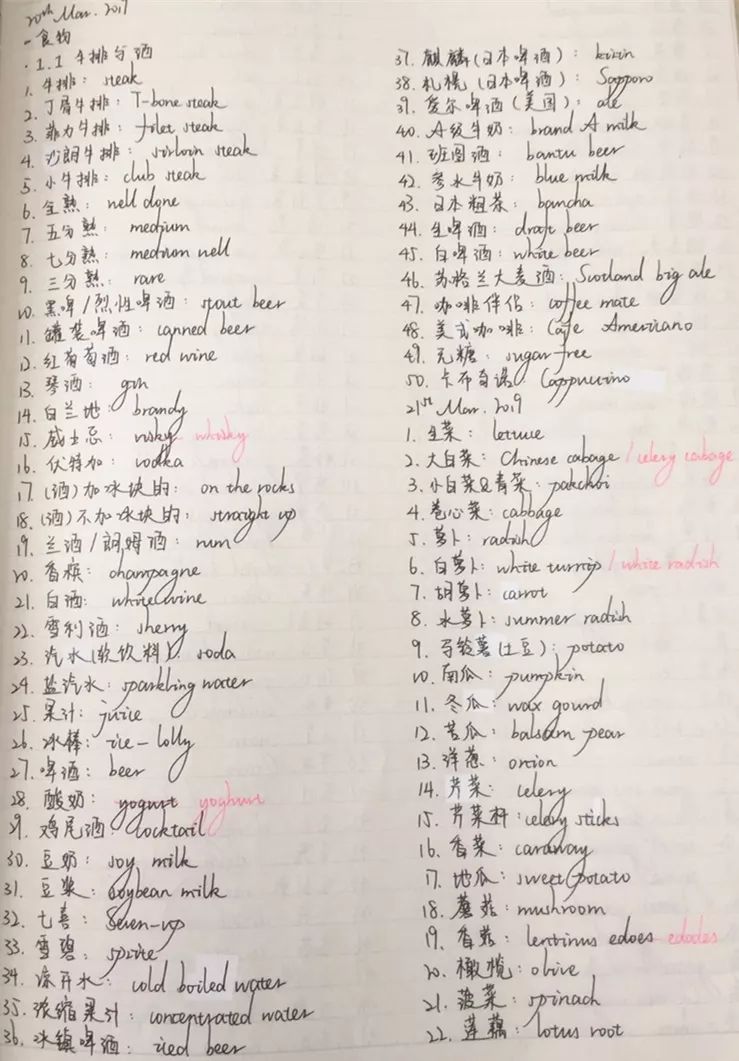 20th Mar. 2019
一食物
·1.1 牛排与酒
1. 牛排: steak
2. 丁眉牛排: T-bone steak
3. 菲力牛排: filet steak
4. 沙朗牛排: sirloin steak
5. 小牛排: club steak
6. 全熟: well done
7. 五分熟: medium
8. 七分熟: medium well
9. 三分熟: rare
10. 黑啤/烈性啤酒: stout beer
11. 罐装啤酒: canned beer
12. 红葡萄酒: red wine
13. 琴酒: gin
14. 白兰地: brandy
15. 威士忌: visky whisky
16. 伏特加: vodka
17. (酒)加冰块的: on the rocks
18. (酒)不加冰块的: straight up
19. 兰酒/朗姆酒: rum
20. 香槟: champagne
21. 白酒: white wine
22. 雪利酒: sherry
23. 汽水(软饮料): soda
24. 盐汽水: sparkling water
25. 果汁: juice
26. 冰棒: ice-lolly
27. 啤酒: beer
28. 酸奶: yogurt yoghurt
29. 鸡尾酒: cocktail
30. 豆奶: soy milk
31. 豆浆: soybean milk
32. 七喜: Seven-up
33. 雪碧: sprite
34. 凉开水: cold boiled water
35. 浓缩果汁: concentrated water
36. 冰镇啤酒: iced beer
37. 麒麟(日本啤酒): kirin
38. 札幌(日本啤酒): Sapporo
39. 爱尔啤酒(美国): ale
40. A级牛奶: brand A milk
41. 班图酒: bantu beer
42. 参水牛奶: blue milk
43. 日本粗茶: bancha
44. 生啤酒: draft beer
45. 白啤酒: white beer
46. 苏格兰大麦酒: Scotland big ale
47. 咖啡伴侣: coffee mate
48. 美式咖啡: Cafe Americano
49. 无糖: sugar free
50. 卡布奇诺 Cappuccino
21st Mar. 2019
1. 生菜: lettuce
2. 大白菜: Chinese cabage / celery cabage
3. 小白菜&青菜: pakchoi
4. 卷心菜: cabbage
5. 萝卜: radish
6. 白萝卜: white turrip / white radish
7. 胡萝卜: carrot
8. 水萝卜: summer radish
9. 马铃薯(土豆): potato
10. 南瓜: pumpkin
11. 冬瓜: wax gourd
12. 苦瓜: balsam pear
13. 洋葱: onion
14. 芹菜: celery
15. 芹菜杆: celery sticks
16. 香菜: caraway
17. 地瓜: sweet potato
18. 蘑菇: mushroom
19. 香菇: lentinus edoes edodes
20. 橄榄: olive
21. 菠菜: spinach
22. 莲藕: lotus root